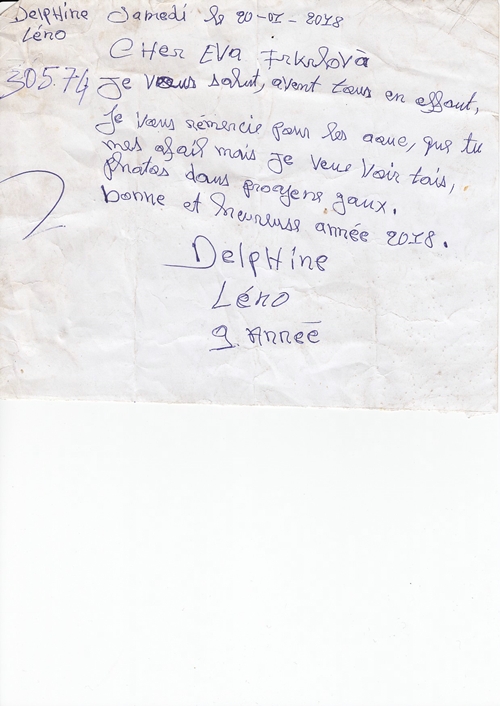 Delphine Samedi le 20-01-2018
Léno
CHer EVA Irkrlovà
30574 Je vous salut, avent tous en effaut,
Je vous rémercie pour les aque, que tu
mas afail mais je veue voir tais,
photos dans progens jaux.
bonne et heureuse année 2018.
2
DelpHine
Léno
9. Année